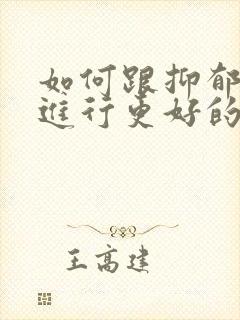 如何跟抑郁
进行更好的
王高建